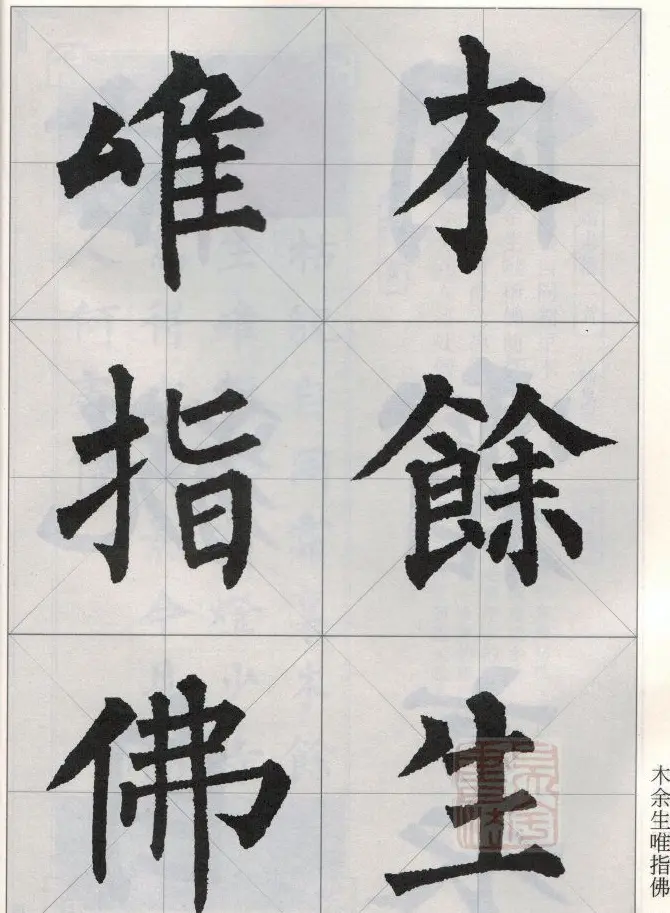 木餘生
唯指佛
木余生唯指佛